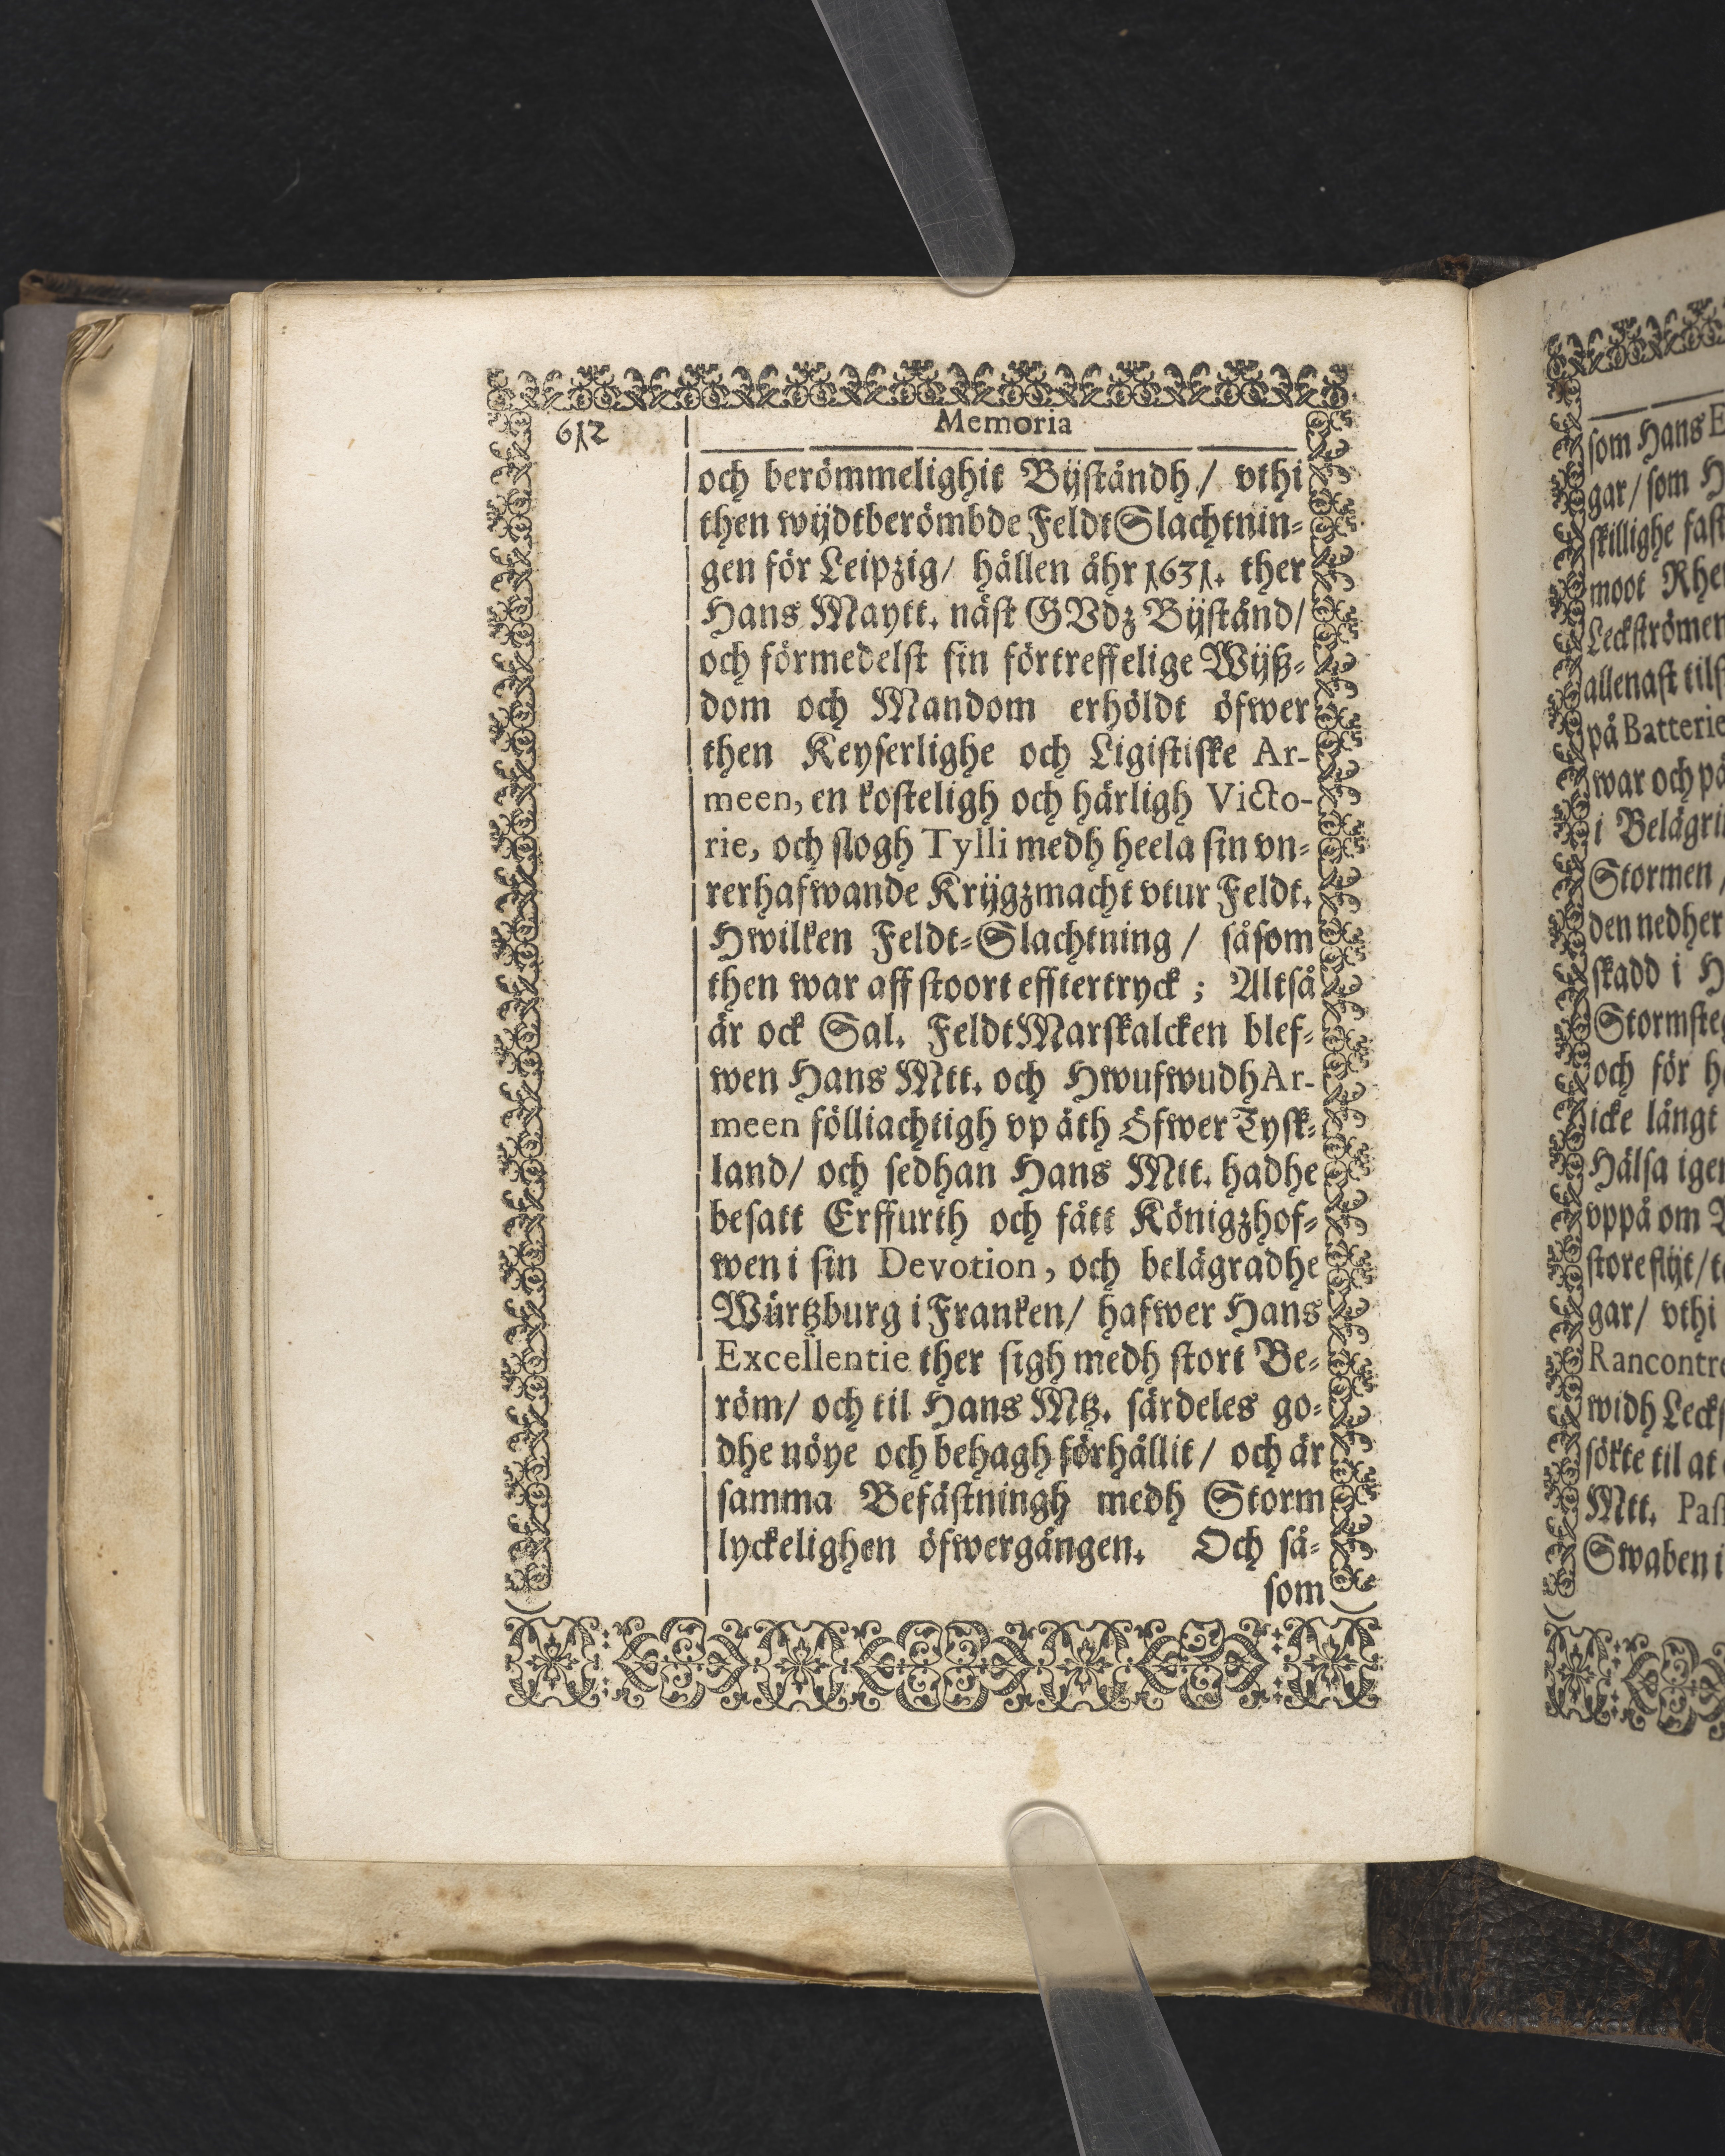 612
Memoria
och berömmelighit Bijståndh / vthi
then wijdtberömbde FeldtSlachtnin-
gen för Leipzig / hållen åhr 1631. ther
Hans Maytt. näst GVdz Bijstånd /
och förmedelst sin förtreffelige Wijß-
dom och Mandom erhöldt öfwer
then Keyserlighe och Ligistiske Ar-
meen, en kosteligh och härligh Victo-
rie, och slogh Tylli medh heela sin vn-
rerhafwande Krijgzmacht vtur Feldt.
Hwilken Feldt-Slachtning / såsom
then war aff stoort efftertryck ; Altså
är ock Sal. FeldtMarskalcken blef-
wen Hans Mtt. och HwufwudhAr-
meen fölliachtigh vp åth Öfwer Tysk-
land / och sedhan Hans Mtt. hadhe
besatt Erffurth och fått Königzhof-
wen i sin Devotion, och belägradhe
Würtzburg i Franken / hafwer Hans
Excellentie ther sigh medh stort Be-
röm / och til Hans Mtz. särdeles go-
dhe nöye och behagh förhållit / och är
samma Befästningh medh Storm
lyckelighen öfwergången. Och så-
som
som Hans E
gar / som H
skillighe fast
moot Rhe
Leckströmen
allenast tils
på Batterie
war och på
i Belägri
Stormen /
den nedher
skadd i H
Stormste
och för h
icke långt
Hälsa igen
vppå om
store flijt / t
gar / vthi
Rancontre
widh Leck
sökte til at
Mtt. Pas
Swaben i